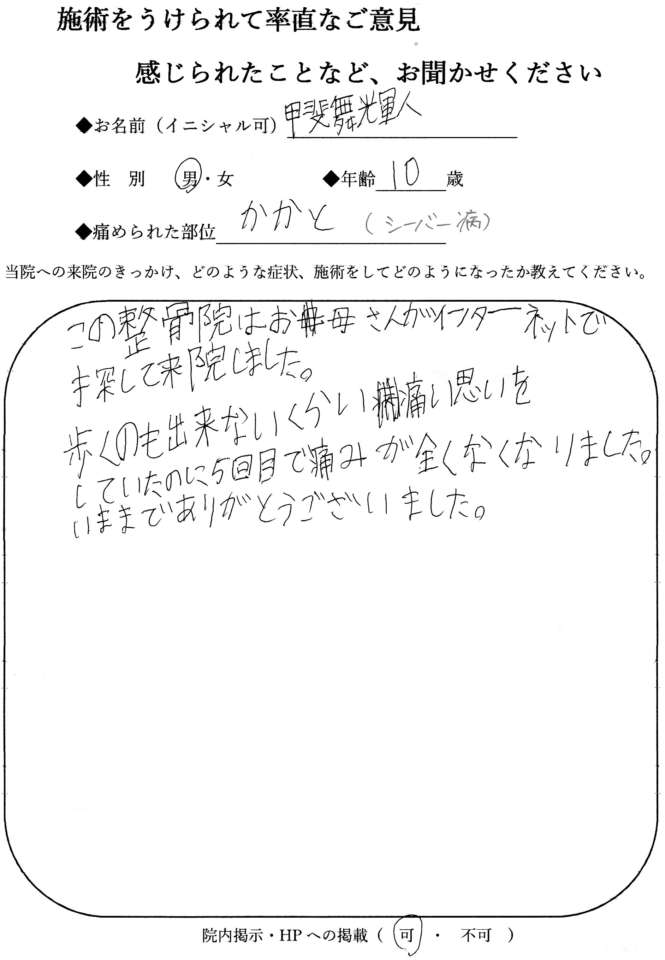 施術をうけられて率直なご意見
感じられたことなど、お聞かせください
◆お名前（イニシャル可） 甲斐舞光輝人
◆性　別　男・女　　◆年齢 10 歳
◆痛められた部位 かかと （シーバー病）
当院への来院のきっかけ、どのような症状、施術をしてどのようになったか教えてください。
この整骨院はお母さんがインターネットで
探して来院しました。
歩くのも出来ないくらい痛い思いを
していたのに5回目で痛みが全くなくなりました。
いままでありがとうございました。
院内掲示・HPへの掲載（ 可 ・ 不可 ）